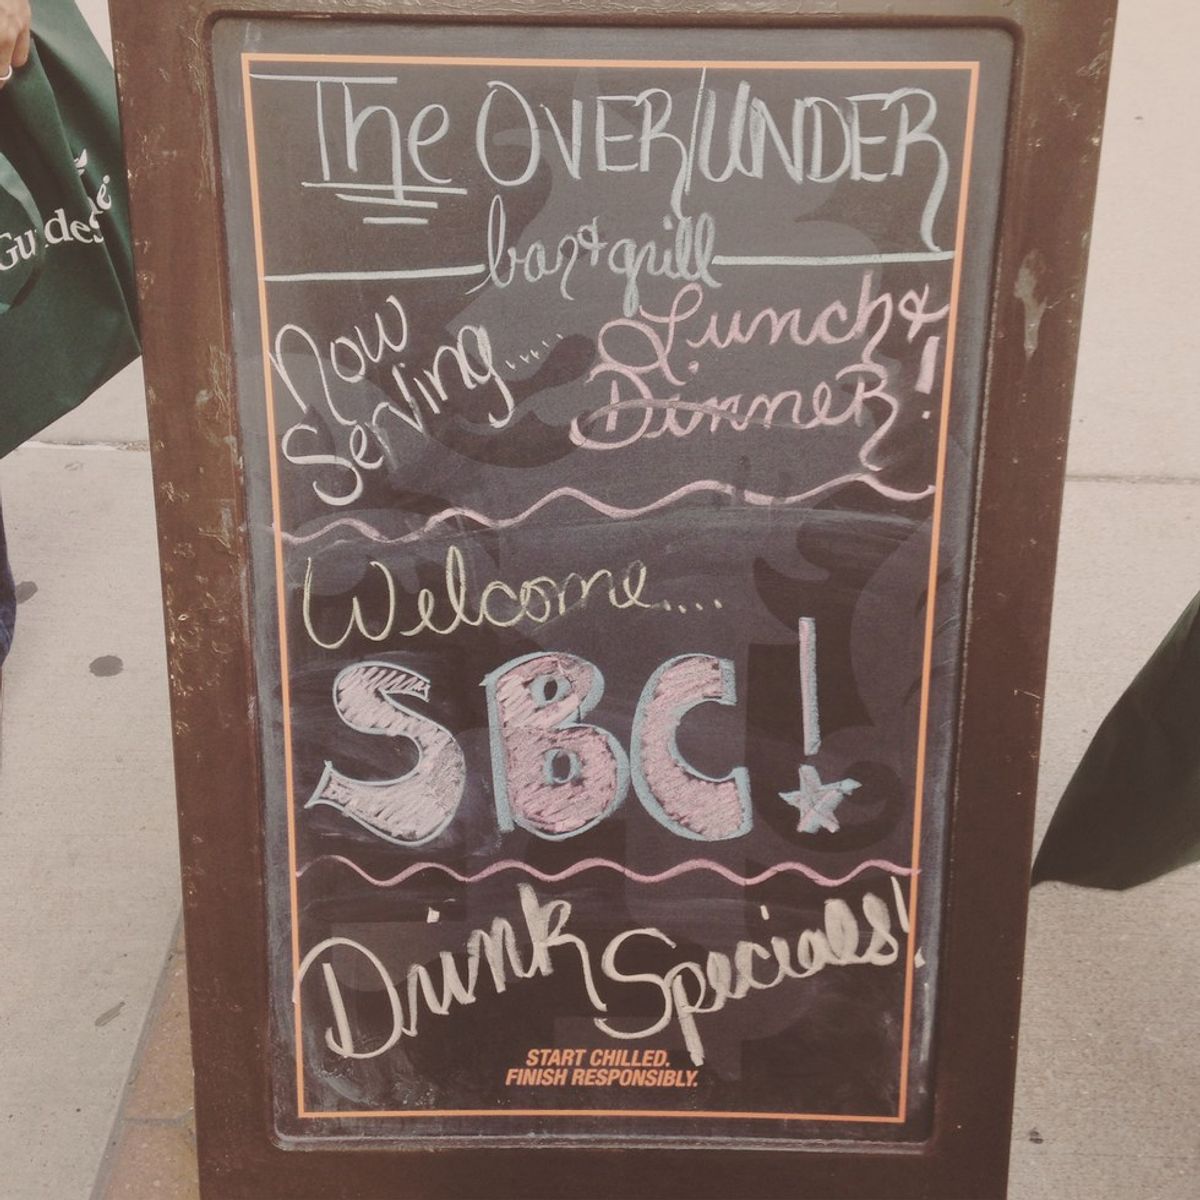 The OVER/UNDER
bar & grill
Now
Serving.....
Lunch &
Dinner!
Welcome....
SBC!
Drink Specials!
START CHILLED.
FINISH RESPONSIBLY.